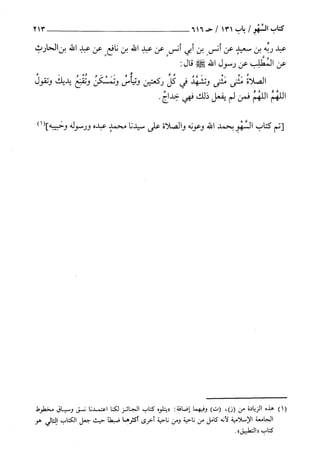 كتاب السَّهْو / باب ١٣١ / حـ ٦١٦ ٢١٣
عبد ربِّه بن سعيدٍ عن أنسِ بن أبي أنسٍ عن عبدِ الله بن نافعٍ عن عبدِ الله بن الحارثِ
عن المُطَّلِبِ عن رسولِ الله ﷺ قال:
الصلاةُ مَثْنى مَثْنى وتَشَهُّدٌ في كُلِّ ركعتينِ وتَبَأُّسٌ وتَمَسْكُنٌ وتُقْنِعُ يديك وتقولُ
اللهُمَّ اللهُمَّ فمن لم يفعل ذلك فهي خِداجٌ.
[تم كتاب السَّهْوِ بحمد الله وعونه والصلاة على سيدنا محمدٍ عبده ورسوله وحَبيبه](١)
(١) هذه الزيادة من (ز)، (ت) وفيهما إضافة: «يتلوه كتاب الجنائز» لكنا اعتمدنا نسق وسياق مخطوط
الجامعة الإسلامية لأنه كامل من ناحية ومن ناحية أخرى أكثرها ضبطاً حيث جعل الكتاب التالي هو
كتاب «التطبيق».